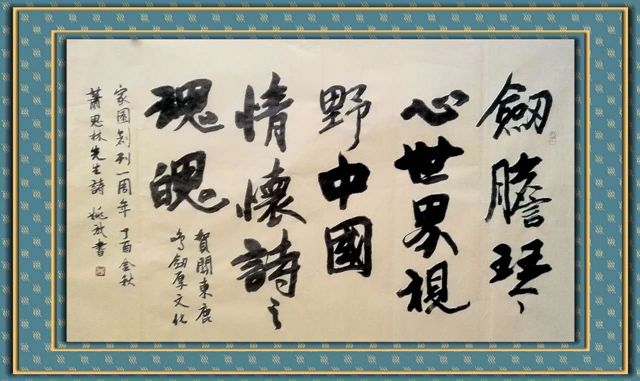 劔膽琴
心世界視
野中國
情懷詩之
魂魄
賀閩東鹿
鸣劔厚文化
家園創刊一周年 丁酉金秋
蕭思林先生詩 姚放書